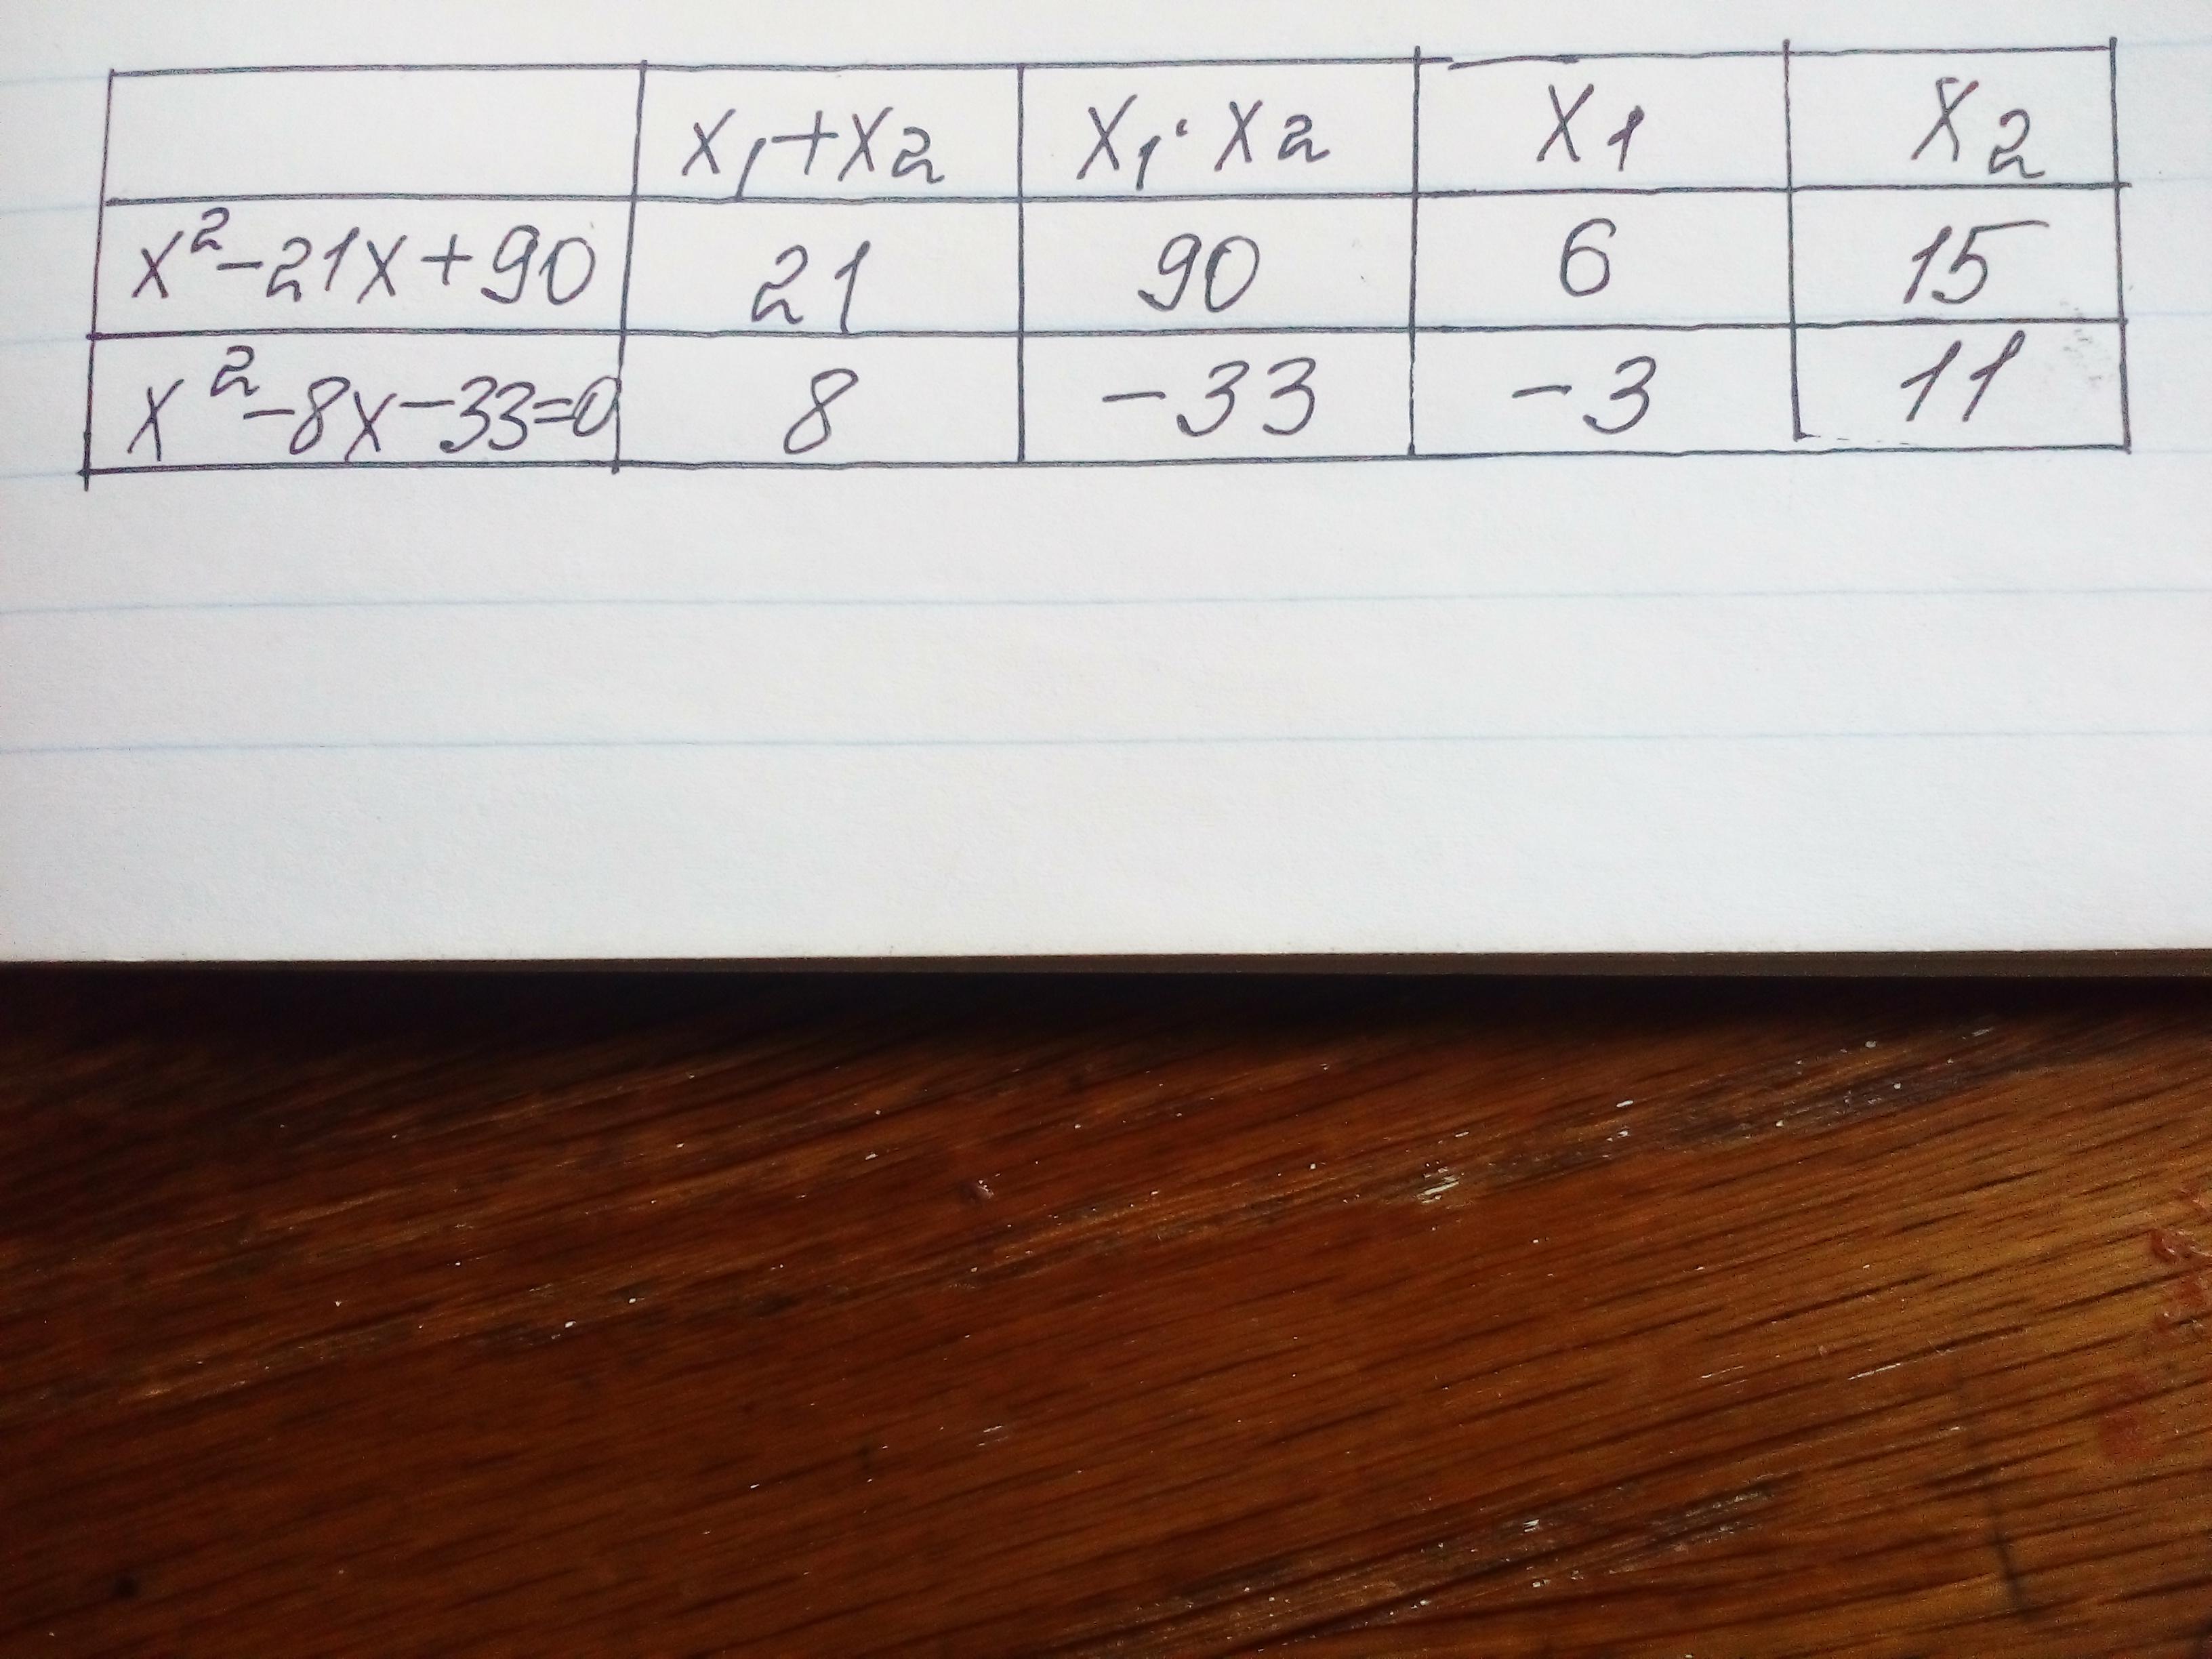 x₁+x₂ x₁·x₂ x₁ x₂
x²-21x+90 21 90 6 15
x²-8x-33=0 8 -33 -3 11